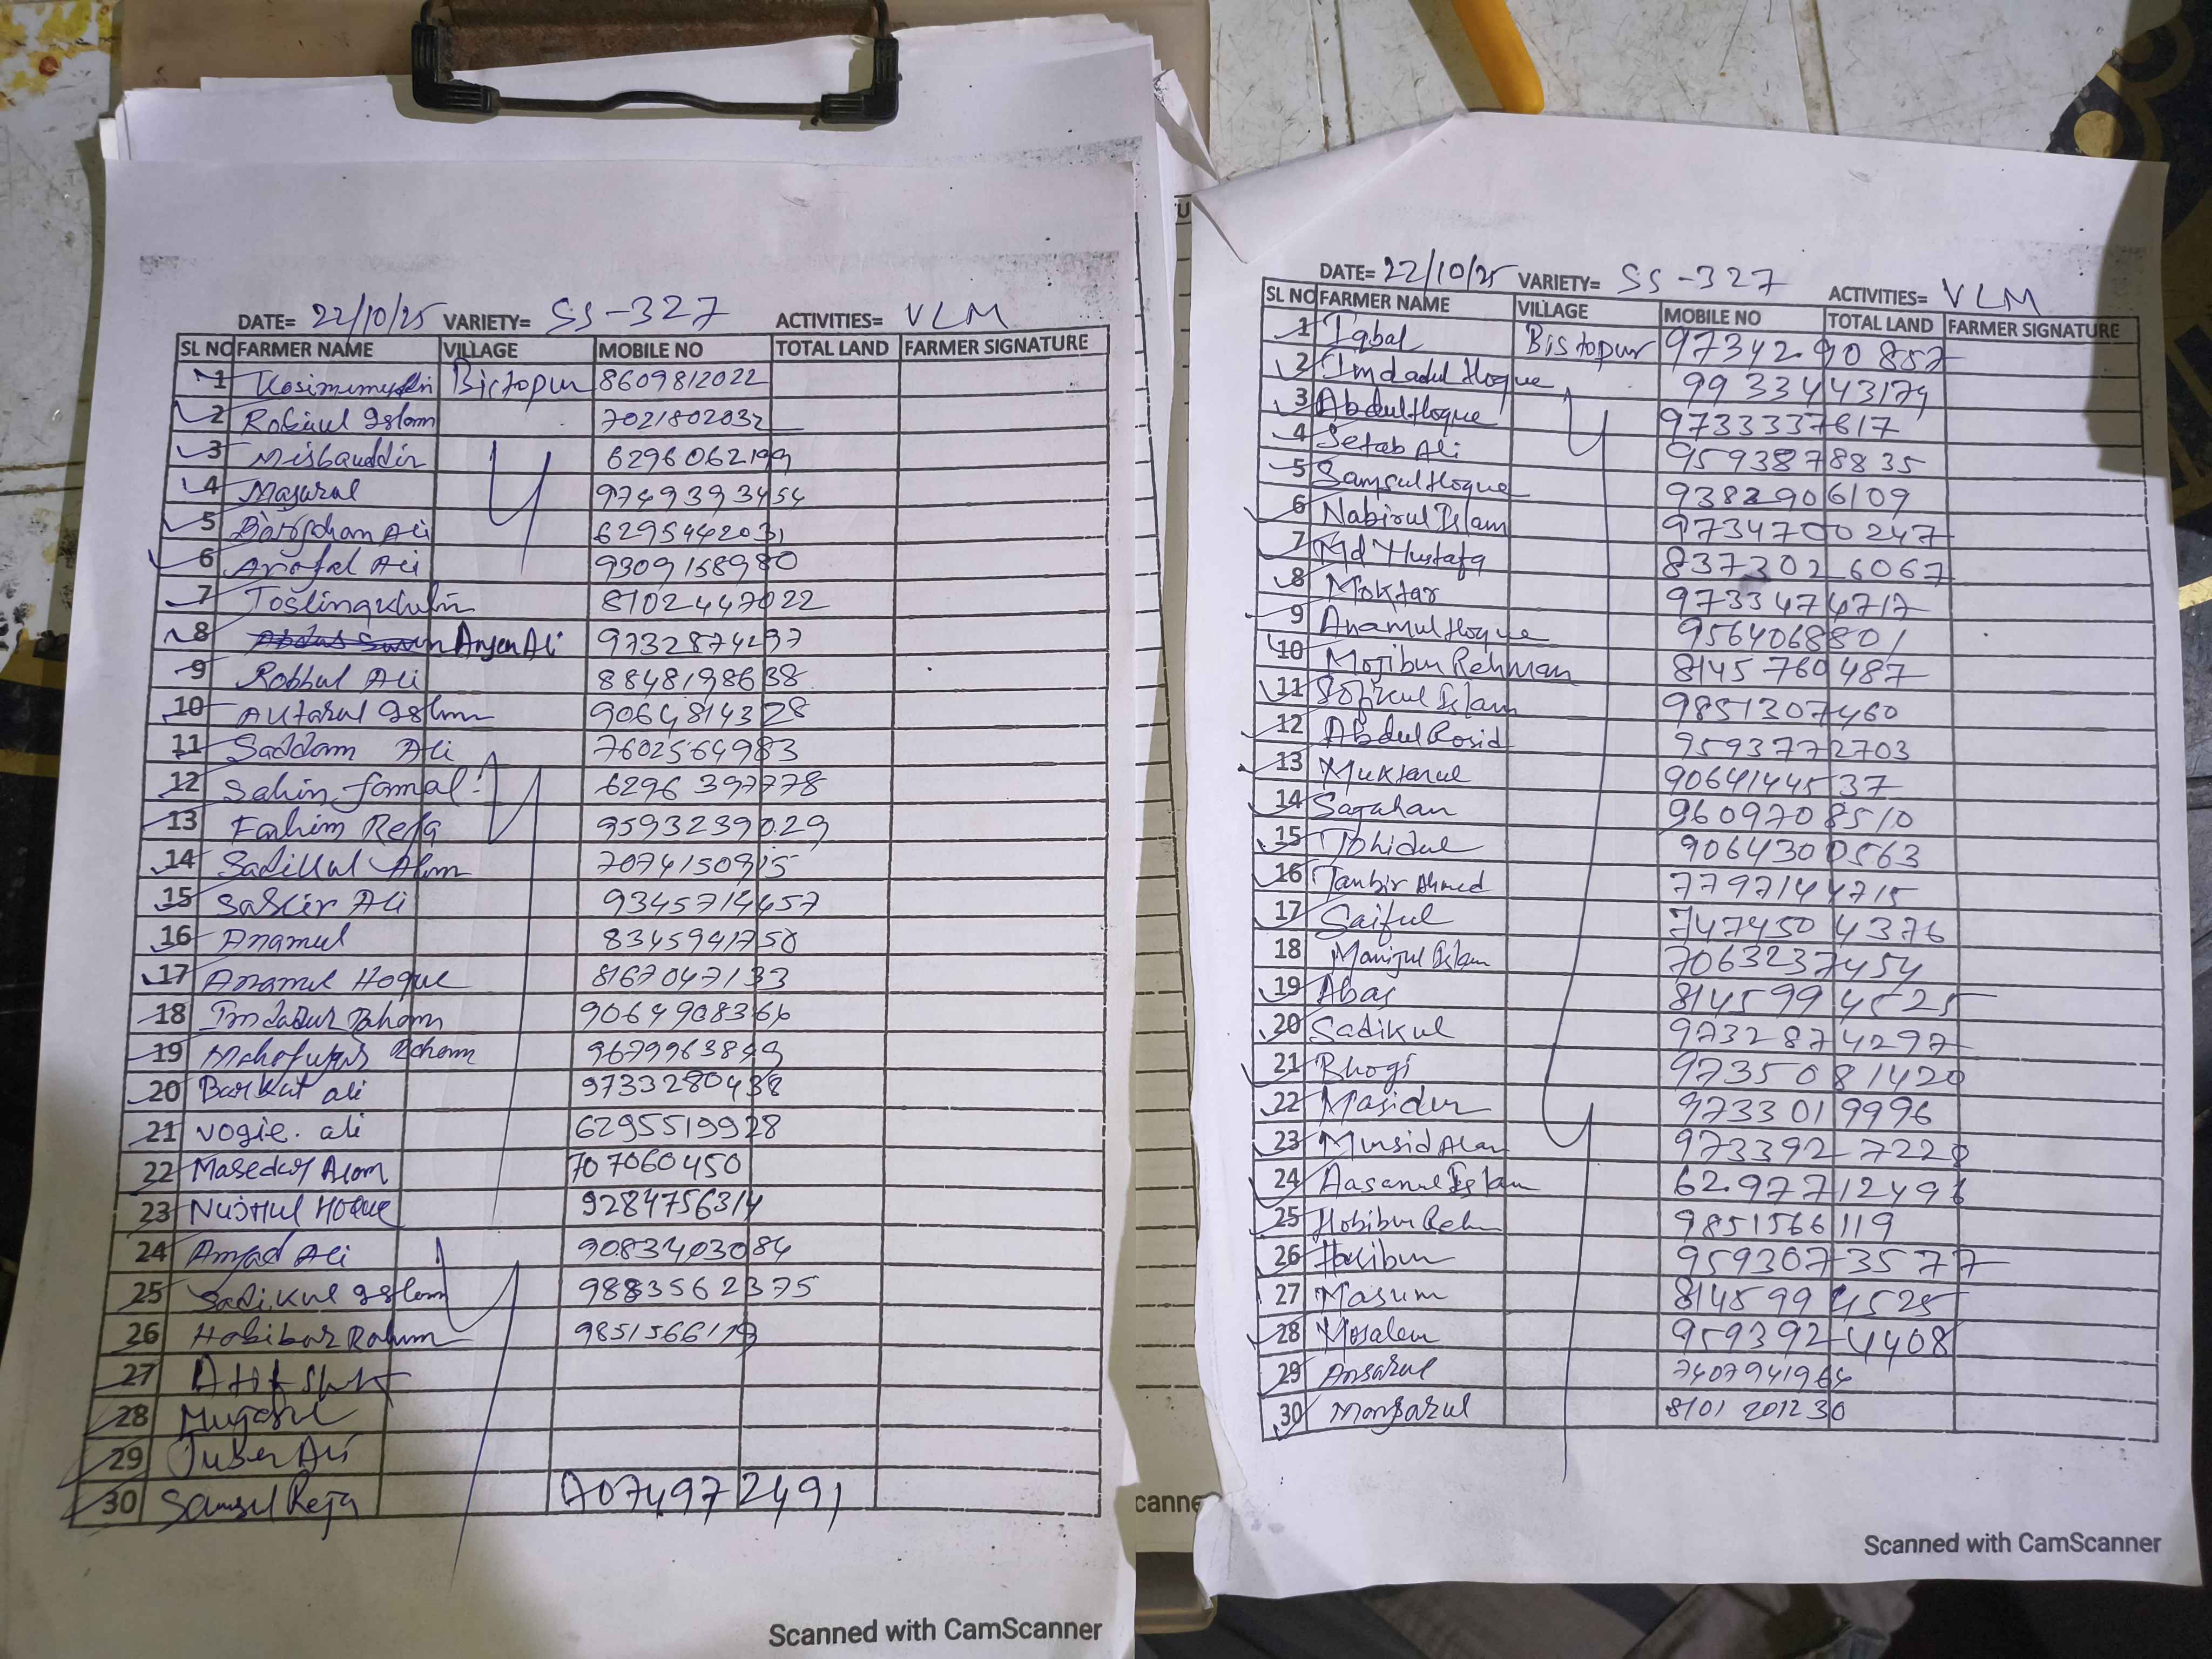 DATE= 22/10/25 VARIETY= SS-327 ACTIVITIES= VLM
SL NO FARMER NAME VILLAGE MOBILE NO TOTAL LAND FARMER SIGNATURE
1 Bistopur 8609812022
2 Robiul Islam 7021802032
3 Misbauddin 6296062199
4 Majural 9749393454
5 Ali 6295442031
6 Ali 9309158980
7 8102447022
8 Anjen Ali 9732874297
9 Robbul Ali 8848198638
10 Autarul Islam 9064814328
11 Saddam Ali 7602564983
12 Sahin Jamal 6296397778
13 Fahim Reja 9593239029
14 Sadikul Alam 7074150915
15 Ali 9345714457
16 Anamul 8345941750
17 Anamul Hoque 8167047133
18 Imdadur Raham 9064908366
19 9679963849
20 Barkat ali 9733280438
21 vogie. ali 6295519928
22 Masedur Alom 707060450
23 Hoque 9284756314
24 Amjad Ali 9083403084
25 Sadikul Islam 9883562375
26 Habibar Rahum 9851566119
27 Atif
28
29 Juber Ali
30 Samsul Reja 7074972491
Scanned with CamScanner
DATE= 22/10/25 VARIETY= SS-327 ACTIVITIES= VLM
SL NO FARMER NAME VILLAGE MOBILE NO TOTAL LAND FARMER SIGNATURE
1 Iqbal Bistopur 9734290857
2 Imdadul Hoque 9933443174
3 Abdul Hoque 9733337617
4 Setab Ali 9593878835
5 Samsul Hoque 9382906109
6 Nabirul Islam 9734700247
7 Md Mustafa 8373026067
8 Moktar 9733474717
9 Anamul Hoque 9564068801
10 Mojibur Rehman 8145760487
11 Sofikul Islam 9851307460
12 Abdul Rosid 9593772703
13 Muktarul 9064144537
14 Sajahan 9609708510
15 Tohidul 9064300563
16 Tanbir Ahmed 7797144715
17 Saiful 7474504376
18 Manijul Islam 7063237454
19 Abas 8145994525
20 Sadikul 9732874297
21 Bhogi 9735081420
22 Masidur 9733019996
23 Mursid Alam 9733927228
24 Aasanul Islam 6297712496
25 Hobibur Rehm 9851566119
26 Habibur 9593073577
27 Masum 8145994525
28 Mosalem 9593924408
29 Ansarul 7407941964
30 Monjarul 8101201230
Scanned with CamScanner